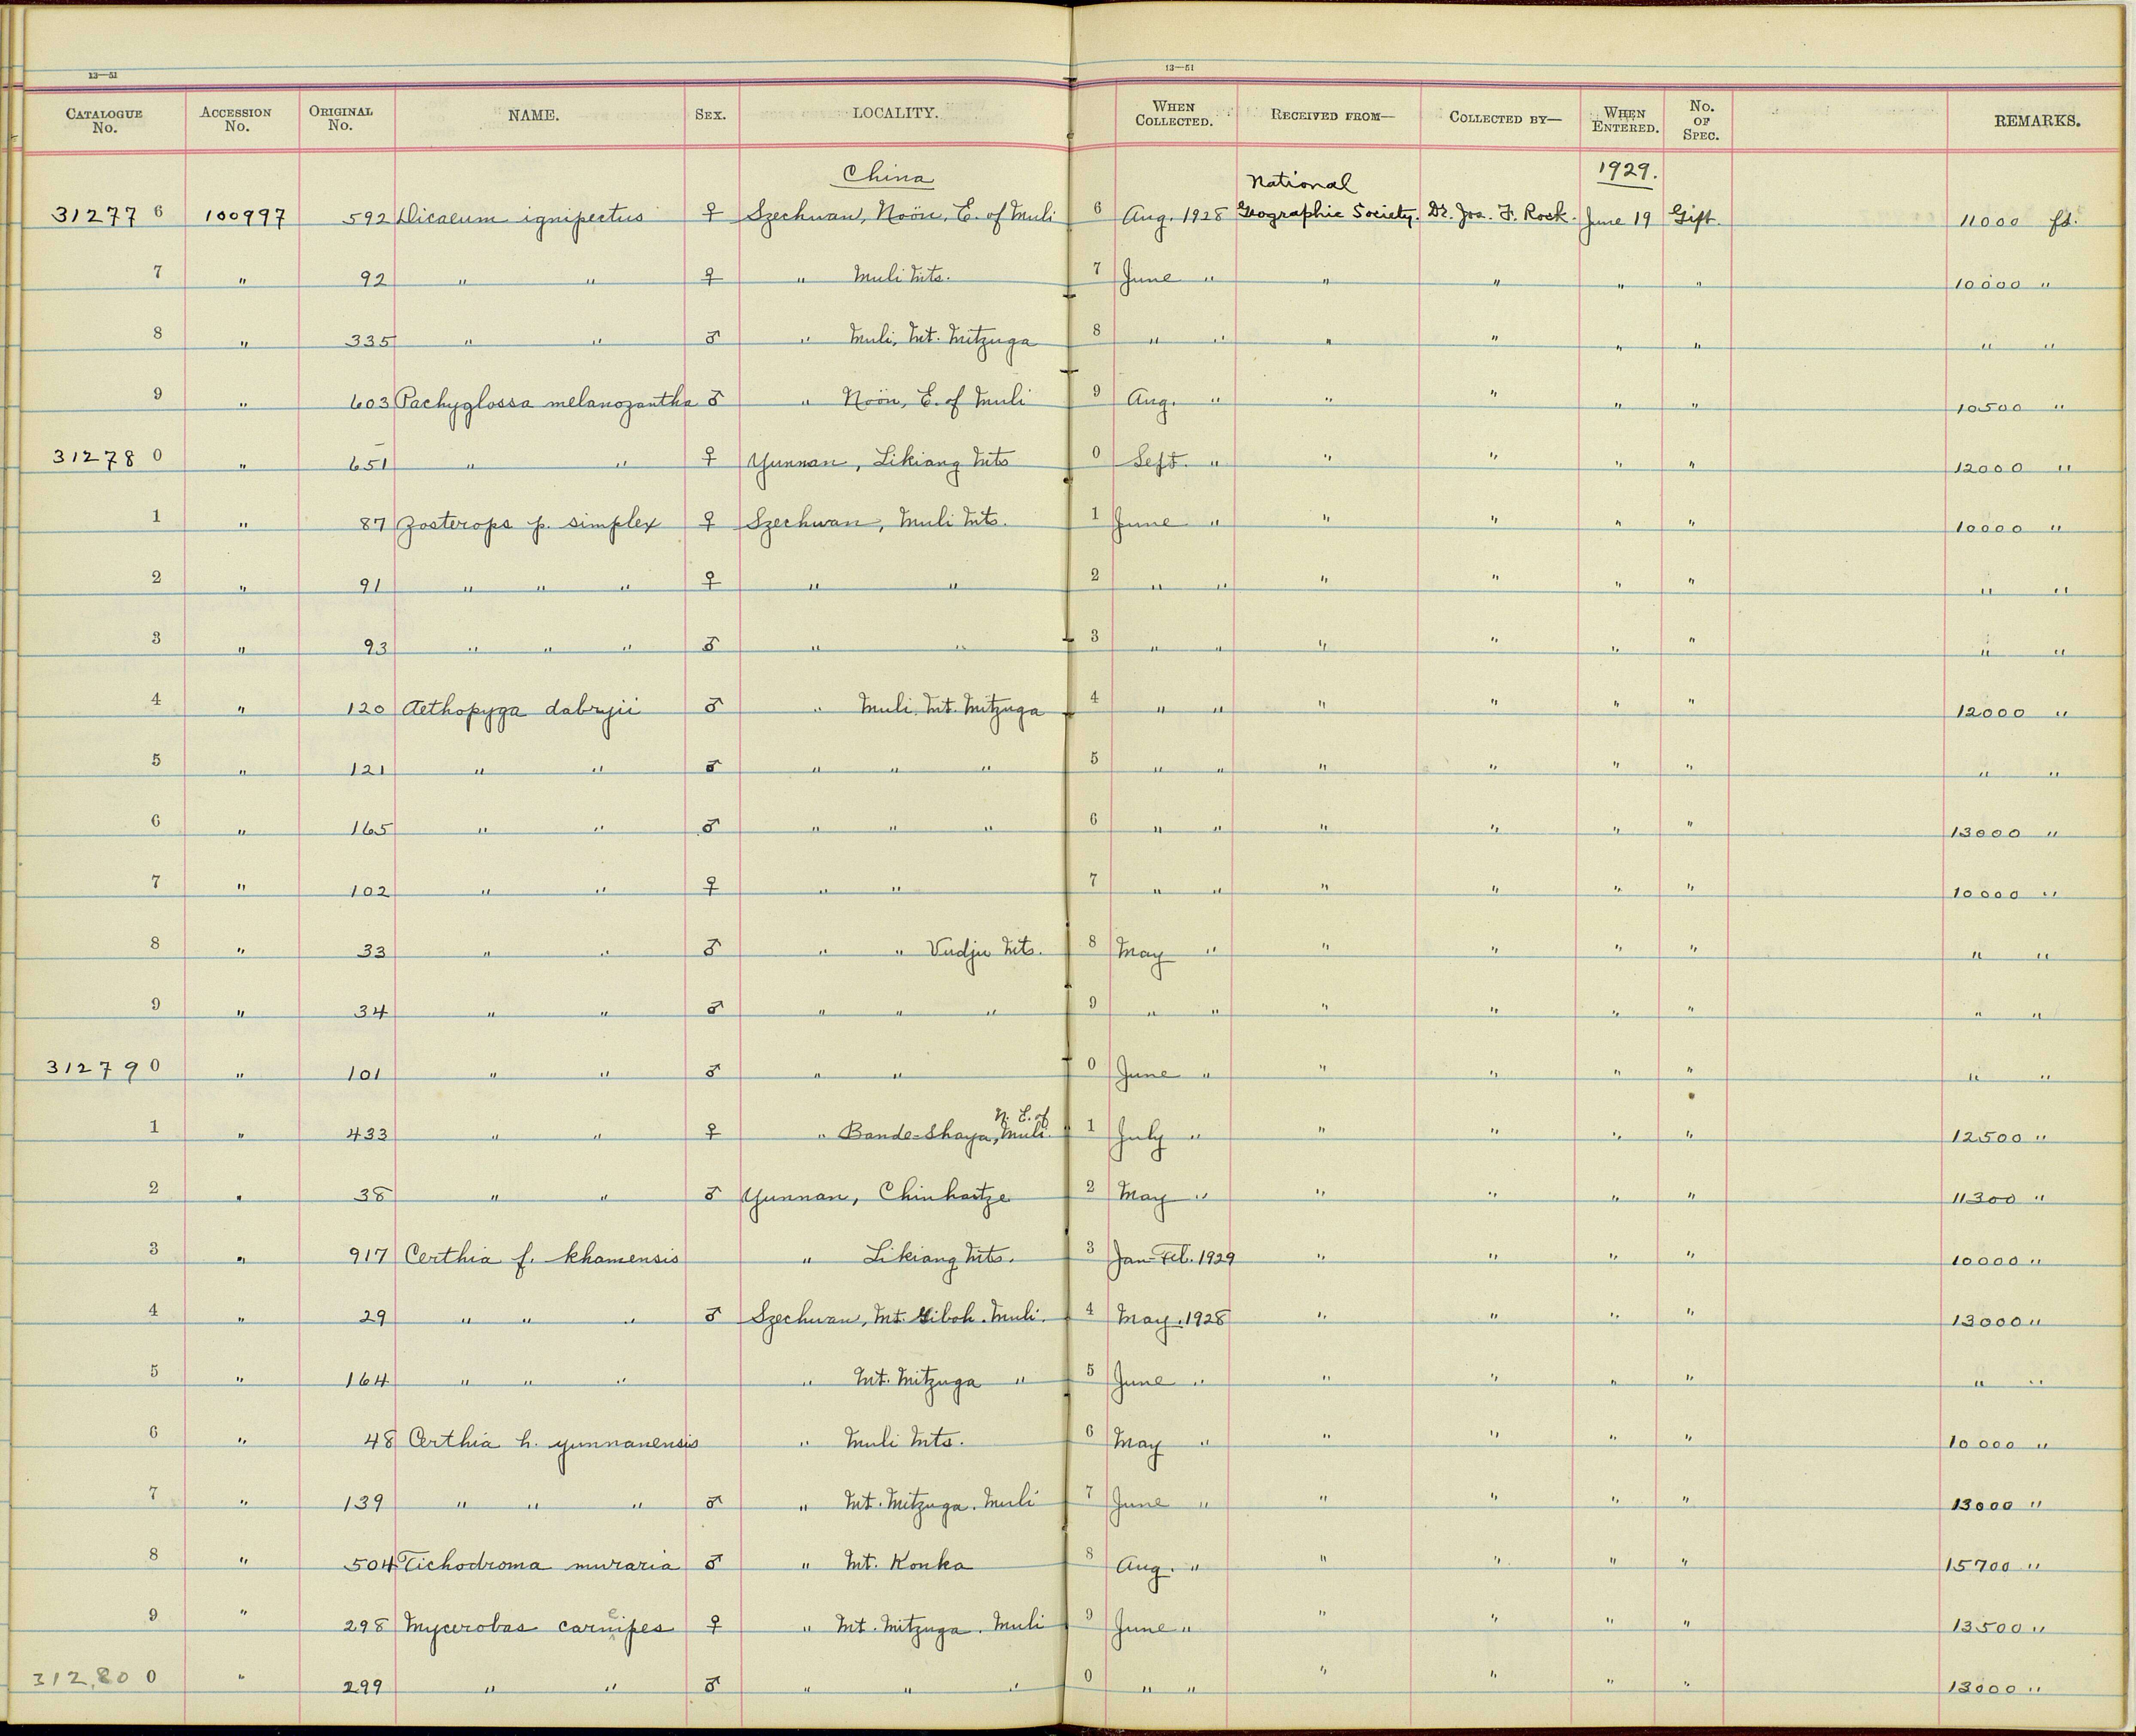 13—51 13—51
CATALOGUE No. ACCESSION No. ORIGINAL No. NAME. SEX. LOCALITY. WHEN COLLECTED. RECEIVED FROM— COLLECTED BY— WHEN ENTERED. No. OF SPEC. REMARKS.
China 1929.
National
31277 6 100997 592 Dicaeum ignipectus ♀ Szechwan, Noön, E. of Muli 6 Aug. 1928 Geographic Society. Dr. Jos. F. Rock. June 19 Gift. 11000 ft.
7 " 92 " " ♀ " Muli Mts. 7 June " " " " " 10000 "
8 " 335 " " ♂ " Muli, Mt. Mitzuga 8 " " " " " " " "
9 " 603 Pachyglossa melanozantha ♂ " Noön, E. of Muli 9 Aug. " " " " " 10500 "
31278 0 " 651 " " ♀ Yunnan, Likiang Mts 0 Sept. " " " " " 12000 "
1 " 87 Zosterops p. simplex ♀ Szechwan, Muli Mts. 1 June " " " " " 10000 "
2 " 91 " " " ♀ " " 2 " " " " " " " "
3 " 93 " " " ♂ " " 3 " " " " " " " "
4 " 120 Aethopyga dabryii ♂ " Muli. Mt. Mitzuga 4 " " " " " " 12000 "
5 " 121 " " ♂ " " " 5 " " " " " " " "
6 " 165 " " ♂ " " " 6 " " " " " " 13000 "
7 " 102 " " ♀ " " 7 " " " " " " 10000 "
8 " 33 " " ♂ " " Vudju Mts. 8 May " " " " " " "
9 " 34 " " ♂ " " " 9 " " " " " " " "
31279 0 " 101 " " ♂ " " 0 June " " " " " " "
N. E. of
1 " 433 " " ♀ " Bande-Shaya, Muli. 1 July " " " " " 12500 "
2 " 38 " " ♂ Yunnan, Chinhaitze 2 May " " " " " 11300 "
3 " 917 Certhia f. khamensis " Likiang Mts. 3 Jan-Feb. 1929 " " " " 10000 "
4 " 29 " " " ♂ Szechwan, Mt. Siboh. Muli. 4 May. 1928 " " " " 13000 "
5 " 164 " " " " Mt. Mitzuga " 5 June " " " " " " "
6 " 48 Certhia h. yunnanensis " Muli Mts. 6 May " " " " " 10000 "
7 " 139 " " " ♂ " Mt. Mitzuga. Muli 7 June " " " " " 13000 "
8 " 504 Tichodroma muraria ♂ " Mt. Konka 8 Aug. " " " " " 15700 "
9 " 298 Mycerobas carnipes ♀ " Mt. Mitzuga. Muli 9 June " " " " " 13500 "
312,80 0 " 299 " " ♂ " " " 0 " " " " " " 13000 "